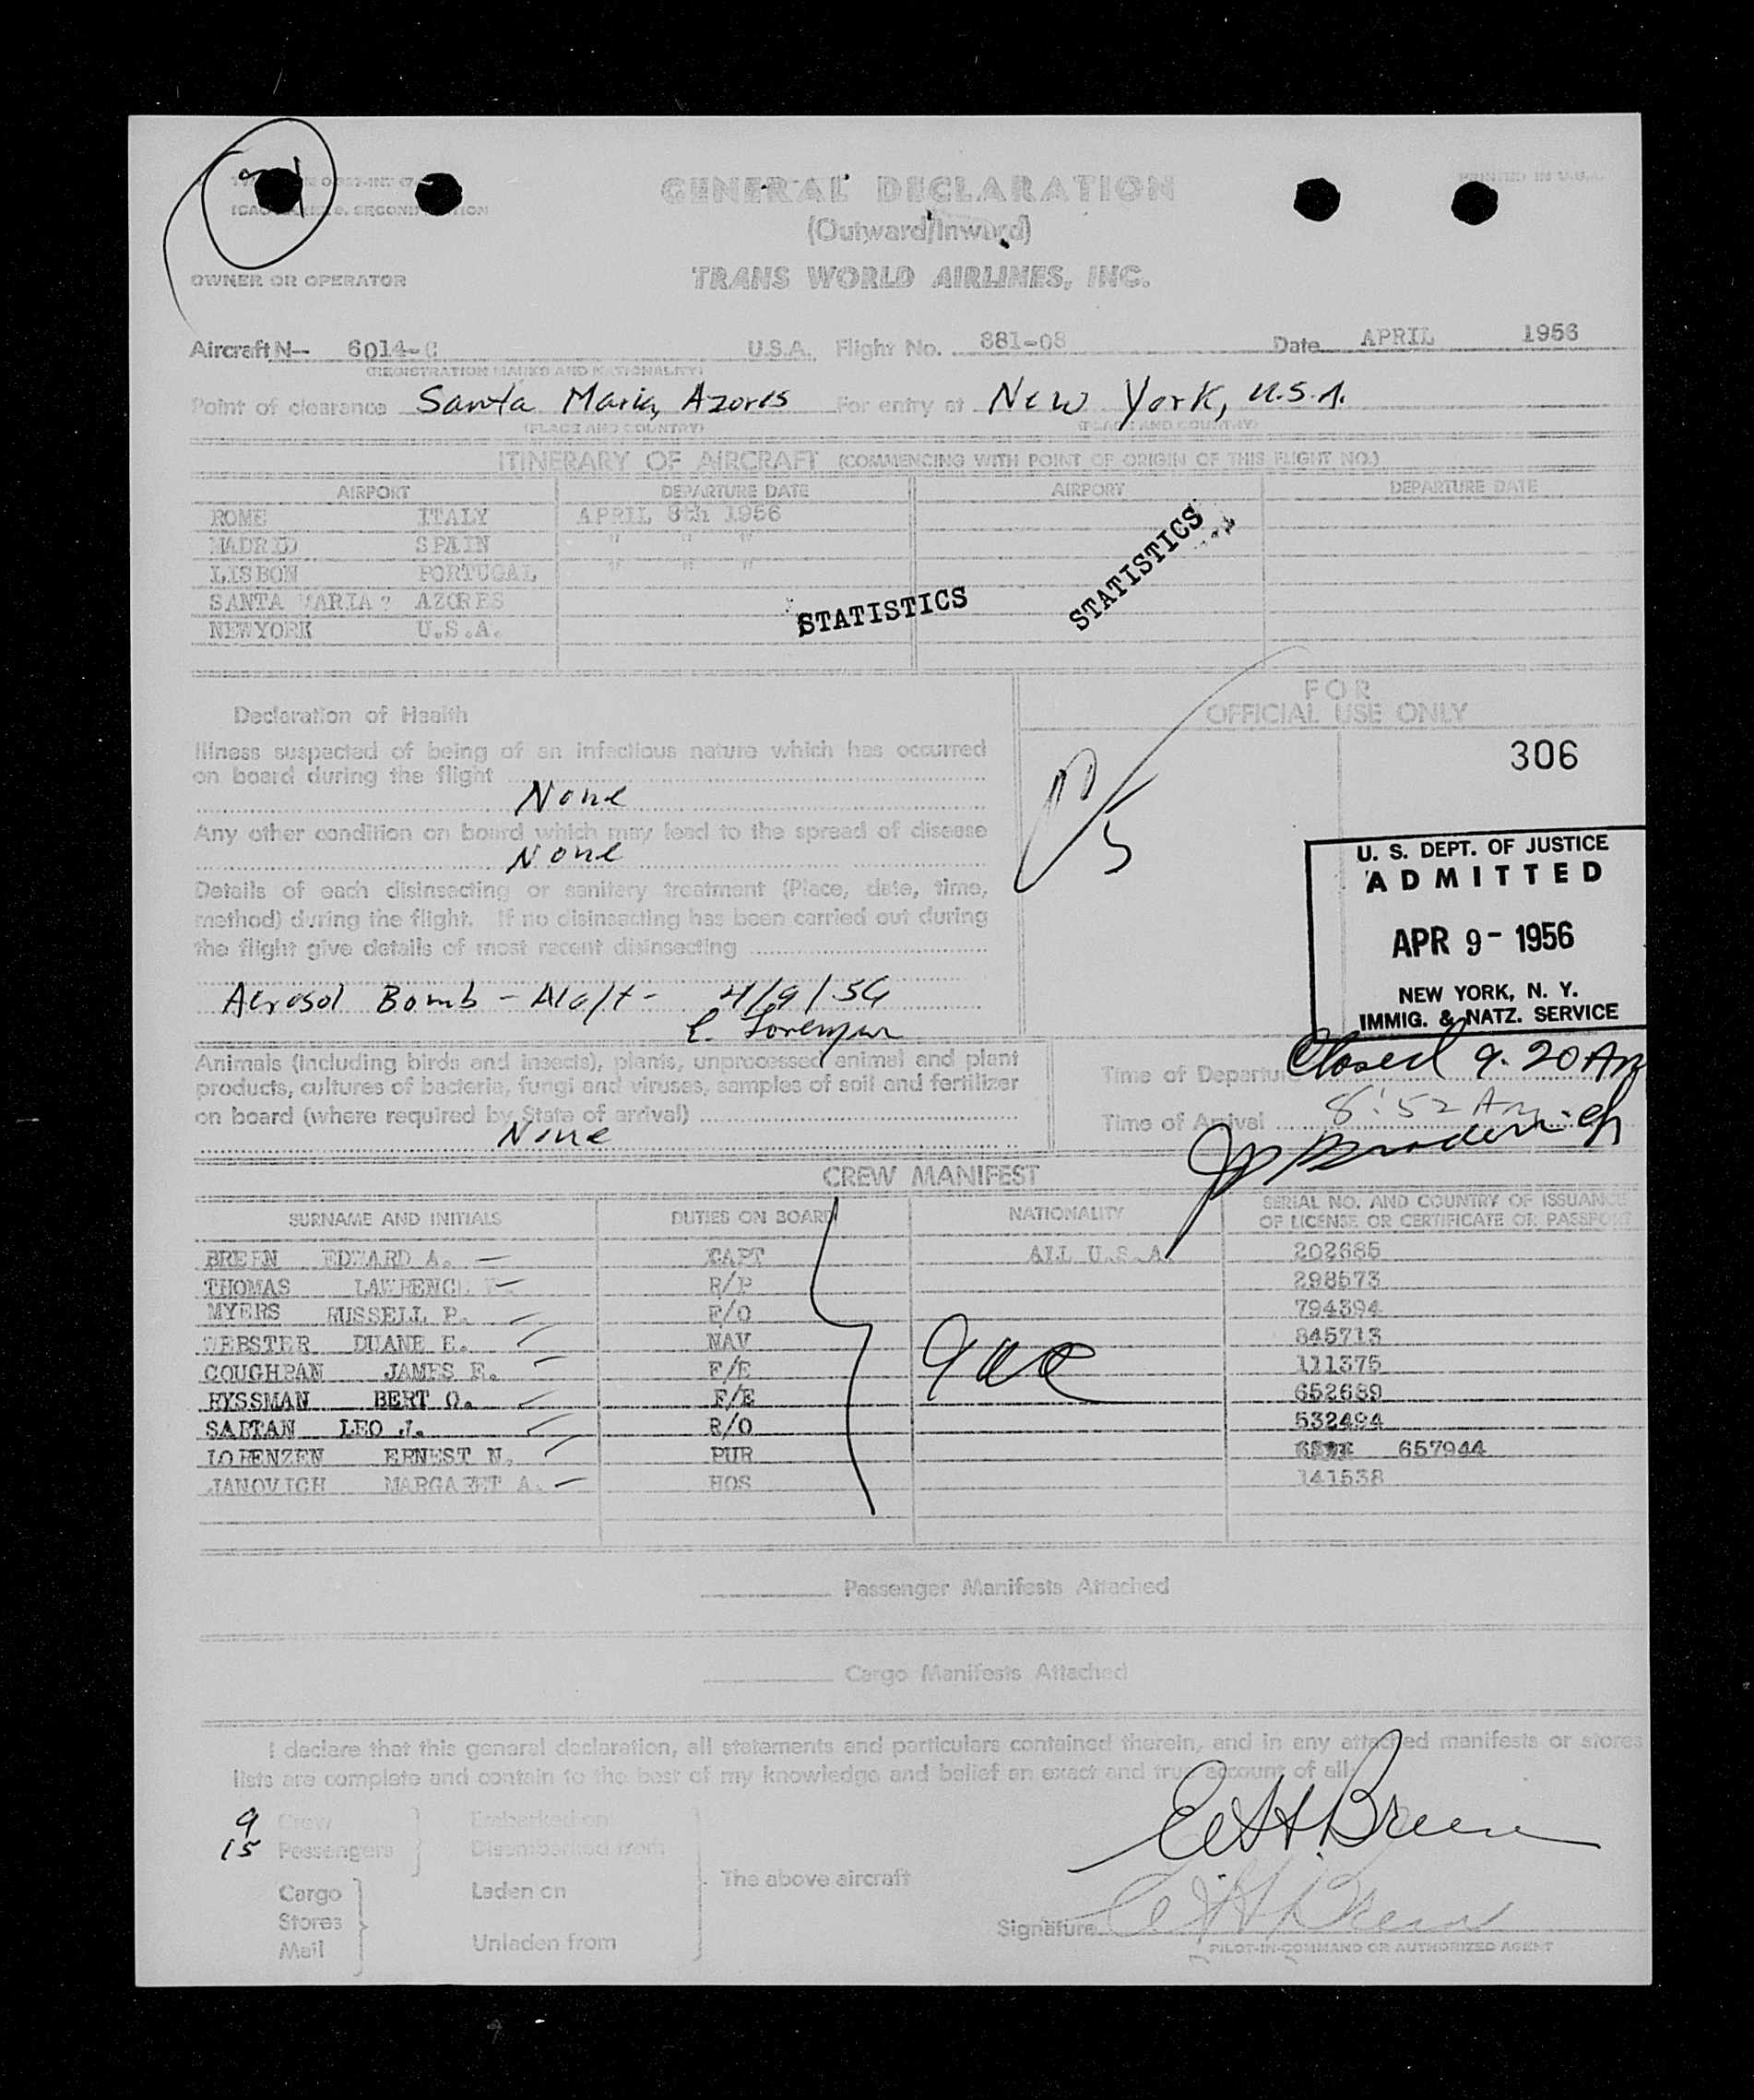 GENERAL DECLARATION
PRINTED IN U.S.A.
(Outward/Inward)
OWNER OR OPERATOR
TRANS WORLD AIRLINES, INC.
Aircraft N-- 6014-C U.S.A. Flight No. 881-08 Date APRIL 1956
(REGISTRATION MARKS AND NATIONALITY)
Point of clearance Santa Maria, Azores For entry at New York, U.S.A.
(PLACE AND COUNTRY) (PLACE AND COUNTRY)
ITINERARY OF AIRCRAFT (COMMENCING WITH POINT OF ORIGIN OF THIS FLIGHT NO.)
AIRPORT DEPARTURE DATE AIRPORT DEPARTURE DATE
ROME ITALY APRIL 8th 1956
MADRID SPAIN " " "
LISBON PORTUGAL " " "
SANTA MARIA? AZORES
NEWYORK U.S.A.
STATISTICS
STATISTICS
FOR
OFFICIAL USE ONLY
306
Declaration of Health
Illness suspected of being of an infectious nature which has occurred
on board during the flight
None
Any other condition on board which may lead to the spread of disease
None
Details of each disinsecting or sanitary treatment (Place, date, time,
method) during the flight. If no disinsecting has been carried out during
the flight give details of most recent disinsecting
Aerosol Bomb - Aloft - 4/9/56
E. Lorenzen
U. S. DEPT. OF JUSTICE
ADMITTED
APR 9 - 1956
NEW YORK, N. Y.
IMMIG. & NATZ. SERVICE
Animals (including birds and insects), plants, unprocessed animal and plant
products, cultures of bacteria, fungi and viruses, samples of soil and fertilizer
on board (where required by State of arrival)
None
Time of Departure Closed 9.20 Am
Time of Arrival 8:52 Am
CREW MANIFEST
SURNAME AND INITIALS DUTIES ON BOARD NATIONALITY SERIAL NO. AND COUNTRY OF ISSUANCE
OF LICENSE OR CERTIFICATE OR PASSPORT
BREEN EDWARD A. CAPT ALL U.S.A. 202685
THOMAS LAWRENCE R/P 298573
MYERS RUSSELL P. F/O 794394
WEBSTER DUANE E. NAV 845713
COUGHRAN JAMES E. F/E 111375
RYSSMAN BERT O. F/E 652689
SABTAN LEO J. R/O 532494
LORENZEN ERNEST N. PUR 657944
JANOVICH MARGARET A. HOS 141538
Passenger Manifests Attached
Cargo Manifests Attached
I declare that this general declaration, all statements and particulars contained therein, and in any attached manifests or stores
lists are complete and contain to the best of my knowledge and belief an exact and true account of all:
9 Crew Embarked on
15 Passengers Disembarked from
Cargo Laden on The above aircraft
Stores
Mail Unladen from
Signature
PILOT-IN-COMMAND OR AUTHORIZED AGENT